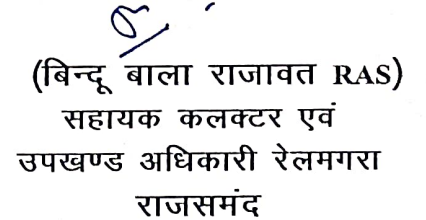 (बिन्दू बाला राजावत RAS)
सहायक कलक्टर एवं
उपखण्ड अधिकारी रेलमगरा
राजसमंद